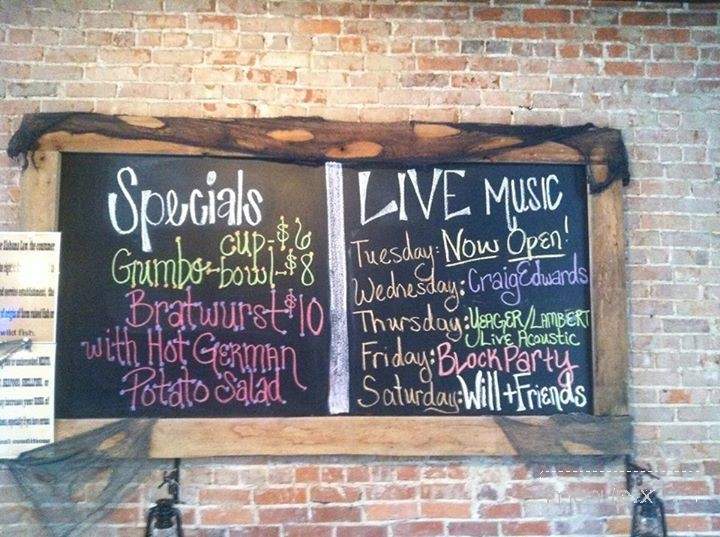 Specials
cup-$6
Grumbo-bowl-$8
Bratwurst $10
with Hot German
Potato Salad
LIVE MUSIC
Tuesday: Now Open!
Wednesday: Craig Edwards
Thursday: YEAGER/LAMBERT
Live Acoustic
Friday: Block Party
Saturday: Will + Friends
Alabama Law, the consumer
wild fish.